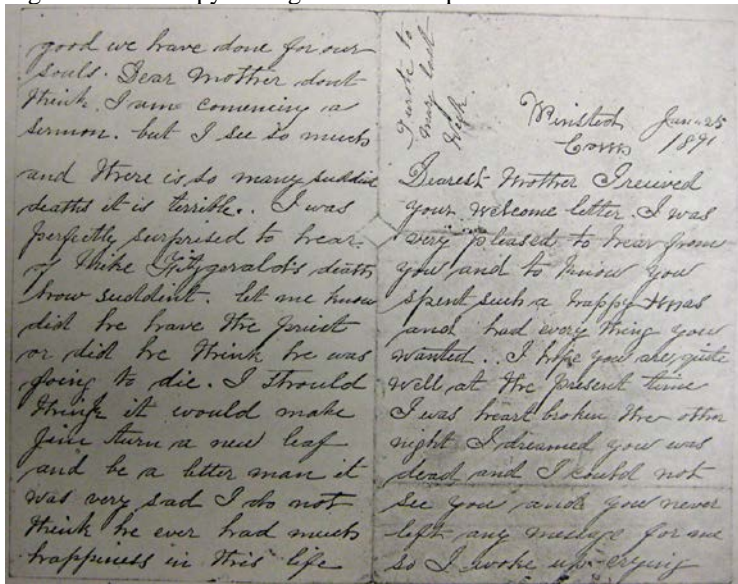 good we have done for our
souls. Dear Mother dont
think I ame comencing a
sermon. but I see so much
and there is so many suddint
deaths it is terrible.. I was
perfectly surprised to hear
of Mike Fitzgerald's death
how suddint. let me know
did he have the priest
or did he think he was
going to die. I should
think it would make
Jim turn a new leaf
and be a better man it
was very sad I do not
think he ever had much
happiness in this life
I wrote to
mary last
Week
Winsted Jan-25
Conn 1891
Dearest Mother I recived
your welcome letter. I was
very pleased to hear from
you and to know you
spent such a happy Xmas
and had every thing you
wanted.. I hope you are quite
well at the present time
I was heart broken the other
night I dreamed you was
dead and I could not
see you and you never
left any message for me
so I woke up crying